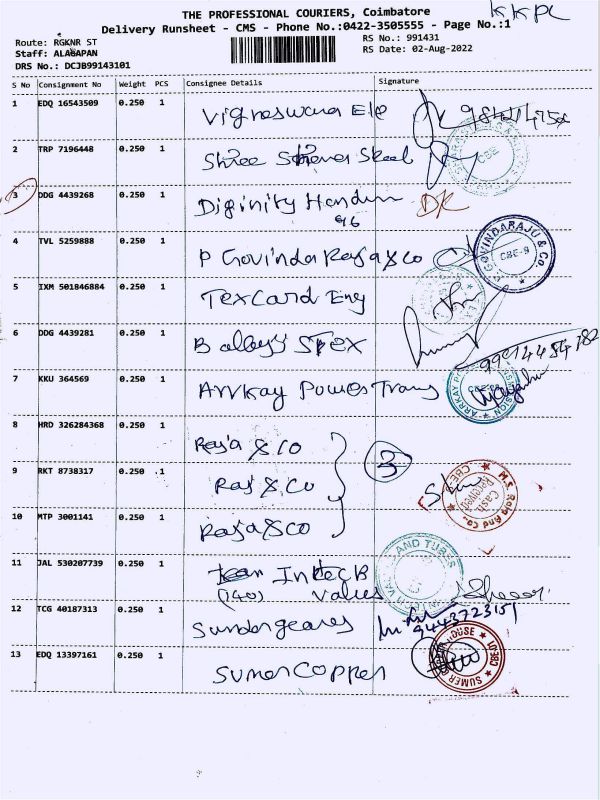 THE PROFESSIONAL COURIERS, Coimbatore
KKPL
Delivery Runsheet - CMS - Phone No.:0422-3505555 - Page No.:1
Route: RGKNR ST
RS No.: 991431
Staff: ALAGAPAN
RS Date: 02-Aug-2022
DRS No.: DCJB99143101
S No Consignment No Weight PCS Consignee Details Signature
1 EDQ 16543509 0.250 1 Vigneswara Ele
2 TRP 7196448 0.250 1 Shree Steel
CBE
3 DDG 4439268 0.250 1
96
4 TVL 5259888 0.250 1 P Govinda Raja & Co
GOVINDARAJU & CO. CBE-9
5 IXM 501846884 0.250 1 Texcard Eng
6 DDG 4439281 0.250 1
7 KKU 364569 0.250 1 Arrkay Power Trans
8 HRD 326284368 0.250 1 Raja & Co
9 RKT 8738317 0.250 1 Raj & Co
3
M.S. Raja And Co., CBE Cash Received
10 MTP 3001141 0.250 1 Raja & Co
11 JAL 530207739 0.250 1 Intec B
(140) Values
AND TUBES
12 TCG 40187313 0.250 1 Sundar geares
9443723151
13 EDQ 13397161 0.250 1 Sumer Copper
SUMER HOUSE CBE-1